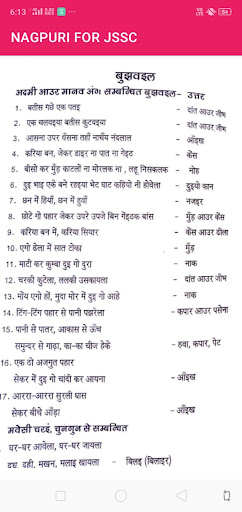 6:13
54
NAGPURI FOR JSSC
बुझवइल
अदमी आउर मानव अंग सम्बन्धित बुझवइल- उत्तर
1. बतीस गछे एक पतइ - दांत आउर जीभ
2. एक चलवइया बतीस कुटवइया - दांत आउर जीभ
3. आसना उपर बँसना तहाँ नाचँय नंदलाल - आँइख
4. करिया बन, जेकर डाइर ना पात ना गेइठ - केंस
5. बीसो कर मुँड़ काटलों ना मोरलक ना , लहू निसकलक - नोह
6. दुइ भाइ एके बने रहइया भेट घाट कहियो नी होवेला - दुइयो कान
7. छन में हियाँ, छन में हुवाँ - नजइर
8. छोटे गो पहार जेकर उपरे उपजे बिन गेंइठक बांस - मुँड़ आउर केंस
9. करिया बन में, करिया सियार - केंस आउर ढीला
10. एगो ढेला में सात टोका - मुँड़
11. माटी कर कुम्बा दुइ गो दुरा - नाक
12. चरकी कुटेला, ललकी उसकायला - दांत आउर जीभ
13. मोंय एगो हों, मुदा मोर में दुइ गो हों - नाक
14. टिंग-टिंग पहार से पानी पझरेला - कपार आउर पसेना
15. पानी से पातर, आकास से ऊँच
समुन्दर से गाढ़ा, का-का चीज हेके - हवा, कपार, पेट
16. एक ठो अजगुत पहार
सेकर में दुइ गो चांदी कर आयना - आँइख
17. आररा-आररा सुरली घास
सेकर बीचे आँड़ा - आँइख
मवेसी चरइं, चुनगुन से सम्बन्धित
घर-घर आवेला, घर-घर जायला
दूध, दही, मखन, मलाइ खायला - बिलइ (बिलाइर)